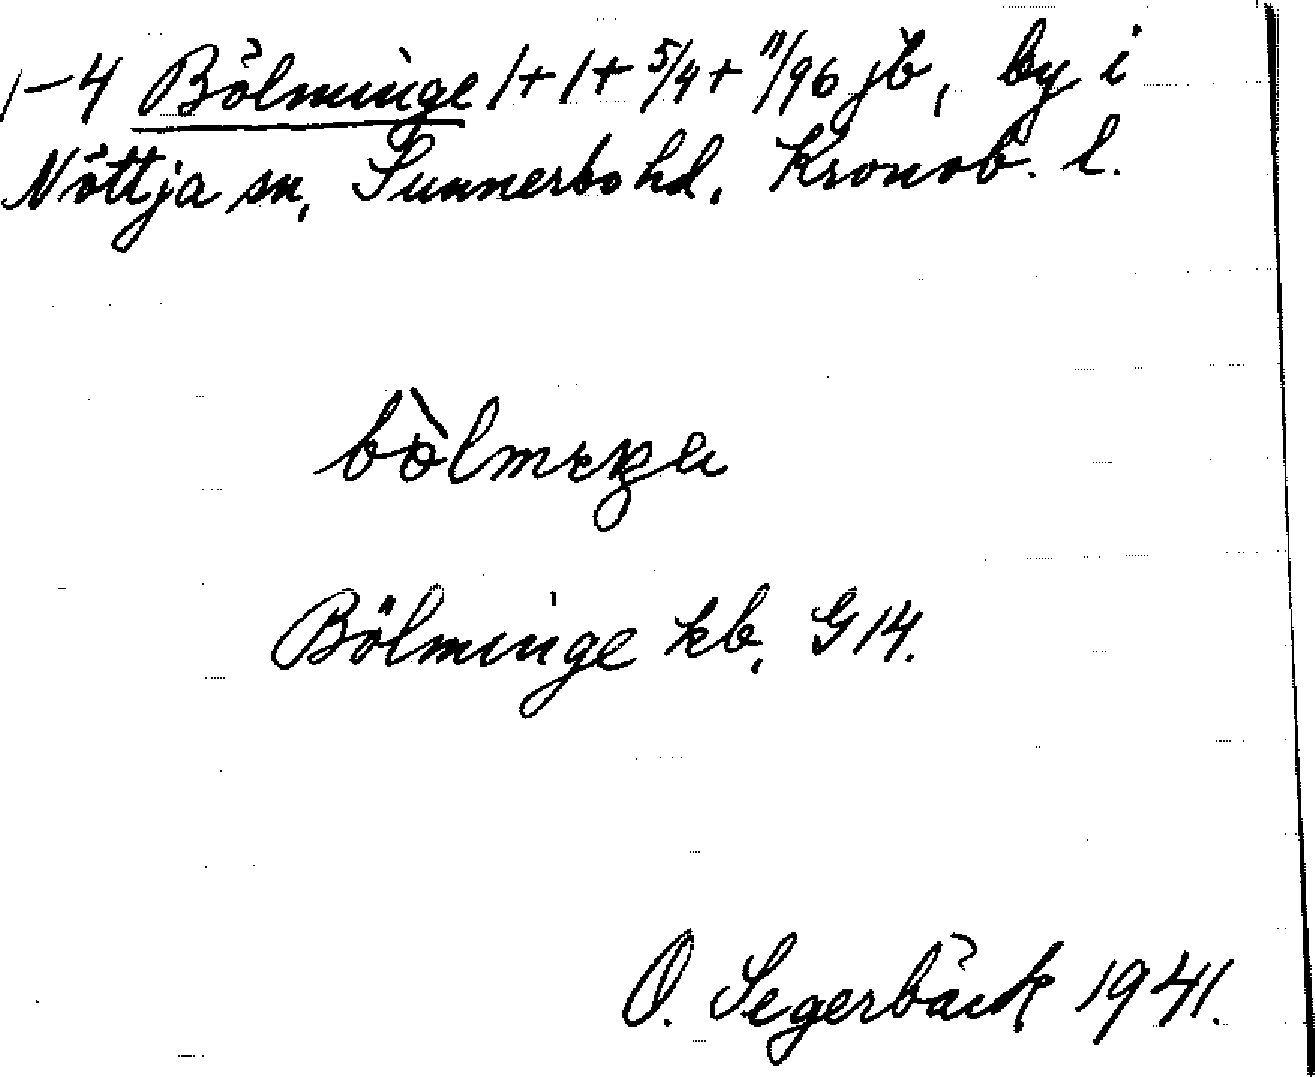 1-4 Bölminge 1+1+5/4+11/96 jb, by i
Nöttja sn, Sunnerbo hd, Kronob. l.
Bölminge kb, G 14.
O. Segerbäck 1941.